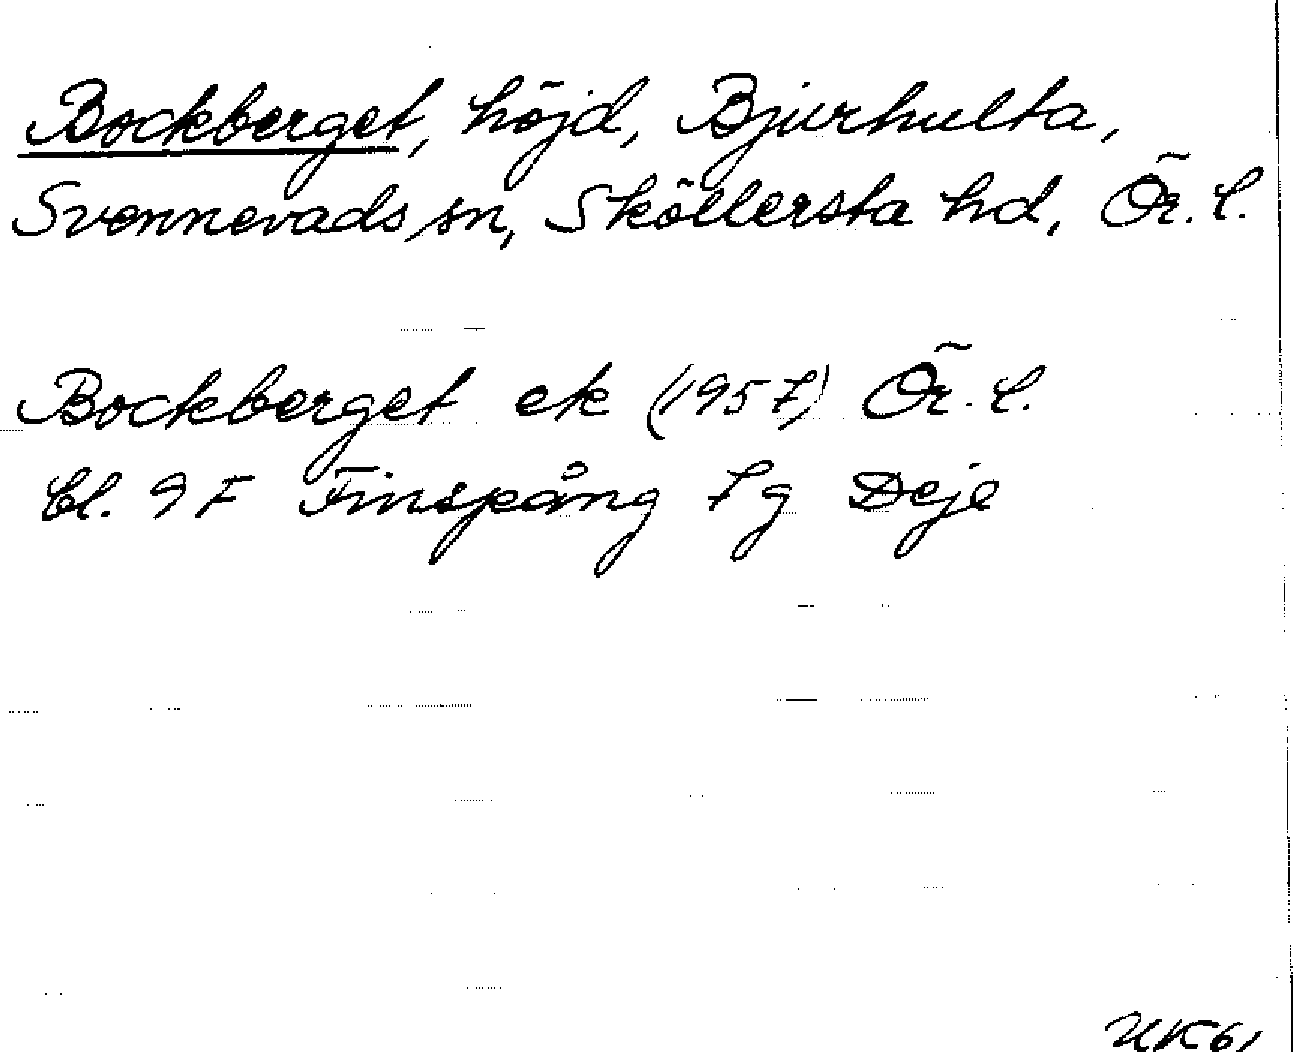 Bockberget, höjd, Bjurhulta,
Svennevads sn, Sköllersta hd, Ör. l.
Bockberget ek (1957) Ör. l.
bl. 9 F Finspång 7 g Deje
UK61